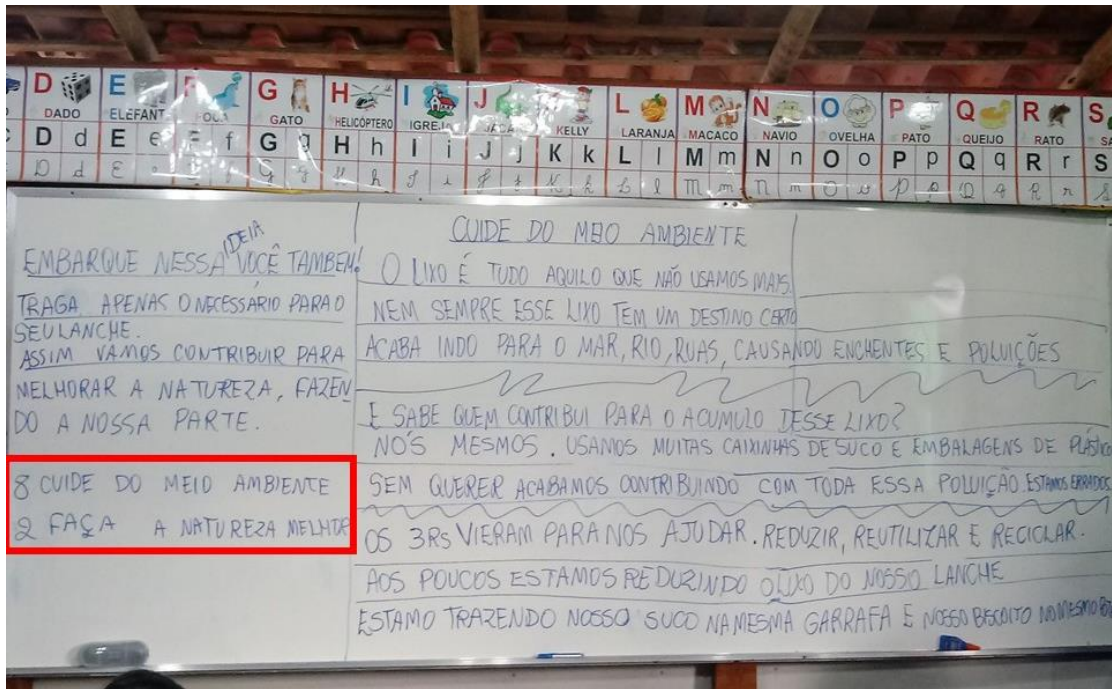 D E F G H I J K L M N O P Q R S
DADO ELEFANTE FOCA GATO HELICÓPTERO IGREJA JACA KELLY LARANJA MACACO NAVIO OVELHA PATO QUEIJO RATO
D d E e F f G g H h I i J j K k L l M m N n O o P p Q q R r S
D d E e F f G g H h I i J j K k L l M m N n O o P p Q q R r S
EMBARQUE NESSA IDEIA VOCÊ TAMBÉM!
TRAGA APENAS O NECESSÁRIO PARA O
SEU LANCHE.
ASSIM VAMOS CONTRIBUIR PARA
MELHORAR A NATUREZA, FAZEN
DO A NOSSA PARTE.
8 CUIDE DO MEIO AMBIENTE
2 FAÇA A NATUREZA MELHOR
CUIDE DO MEIO AMBIENTE
O LIXO É TUDO AQUILO QUE NÃO USAMOS MAIS.
NEM SEMPRE ESSE LIXO TEM UM DESTINO CERTO
ACABA INDO PARA O MAR, RIO, RUAS, CAUSANDO ENCHENTES E POLUIÇÕES
E SABE QUEM CONTRIBUI PARA O ACUMULO DESSE LIXO?
NÓS MESMOS. USAMOS MUITAS CAIXINHAS DE SUCO E EMBALAGENS DE PLÁSTICO
SEM QUERER ACABAMOS CONTRIBUINDO COM TODA ESSA POLUIÇÃO. ESTAMOS ERRADOS
OS 3RS VIERAM PARA NOS AJUDAR. REDUZIR, REUTILIZAR E RECICLAR.
AOS POUCOS ESTAMOS REDUZINDO O LIXO DO NOSSO LANCHE
ESTAMO TRAZENDO NOSSO SUCO NA MESMA GARRAFA E NOSSO BISCOITO NO MESMO